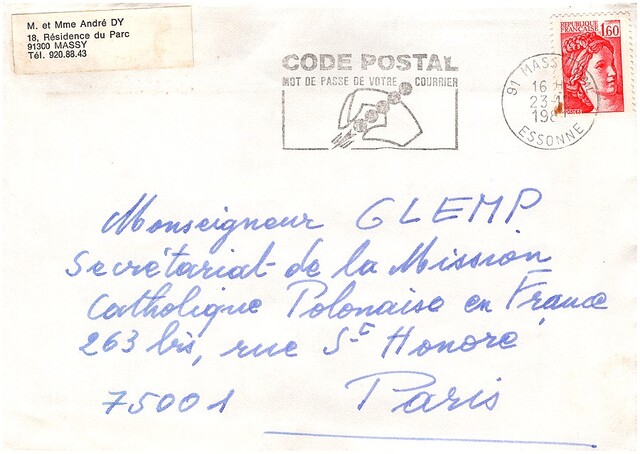 M. et Mme André DY
18, Résidence du Parc
91300 MASSY
Tél. 920.88.43
CODE POSTAL
MOT DE PASSE DE VOTRE COURRIER
REPUBLIQUE
FRANÇAISE 1,60
91 MASSY
23-
ESSONNE
Monseigneur GLEMP
Secrétariat de la Mission
Catholique Polonaise en France
263 bis, rue St Honoré
75001 Paris